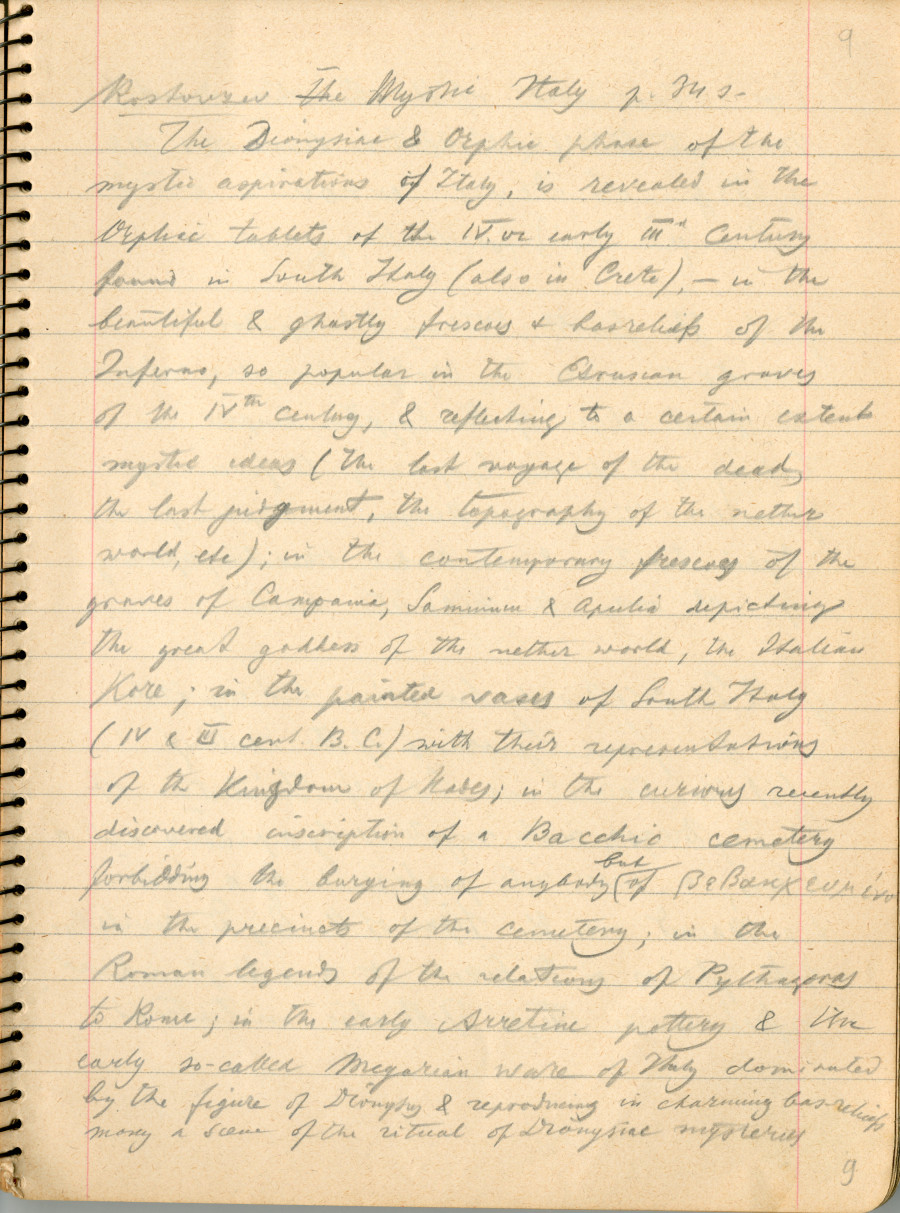 9
Rostovzev The Mystic Italy p.
The Dionysiac & Orphic phase of the
mystic aspirations of Italy, is revealed in the
Orphic tablets of the IV. or early III" Century
found in South Italy (also in Crete), — in the
beautiful & ghastly frescoes & basreliefs of the
Inferno, so popular in the Etruscan graves
of the IVth century, & reflecting to a certain extent
mystic ideas (the last voyage of the dead,
the last judgment, the topography of the nether
world, etc); in the contemporary frescoes of the
graves of Campania, Samnium & Apulia depicting
the great goddess of the nether world, the Italian
Kore; in the painted vases of South Italy
(IV & III cent. B.C.) with their representations
of the Kingdom of Hades; in the curious recently
discovered inscription of a Bacchic cemetery
forbidding the burying of anybody but of βεβακχευμένο
in the precincts of the cemetery; in the
Roman legends of the relations of Pythagoras
to Rome; in the early Arretine pottery & the
early so-called Megarian ware of Italy dominated
by the figure of Dionysus & reproducing in charming basreliefs
many a scene of the ritual of Dionysiac mysteries
9